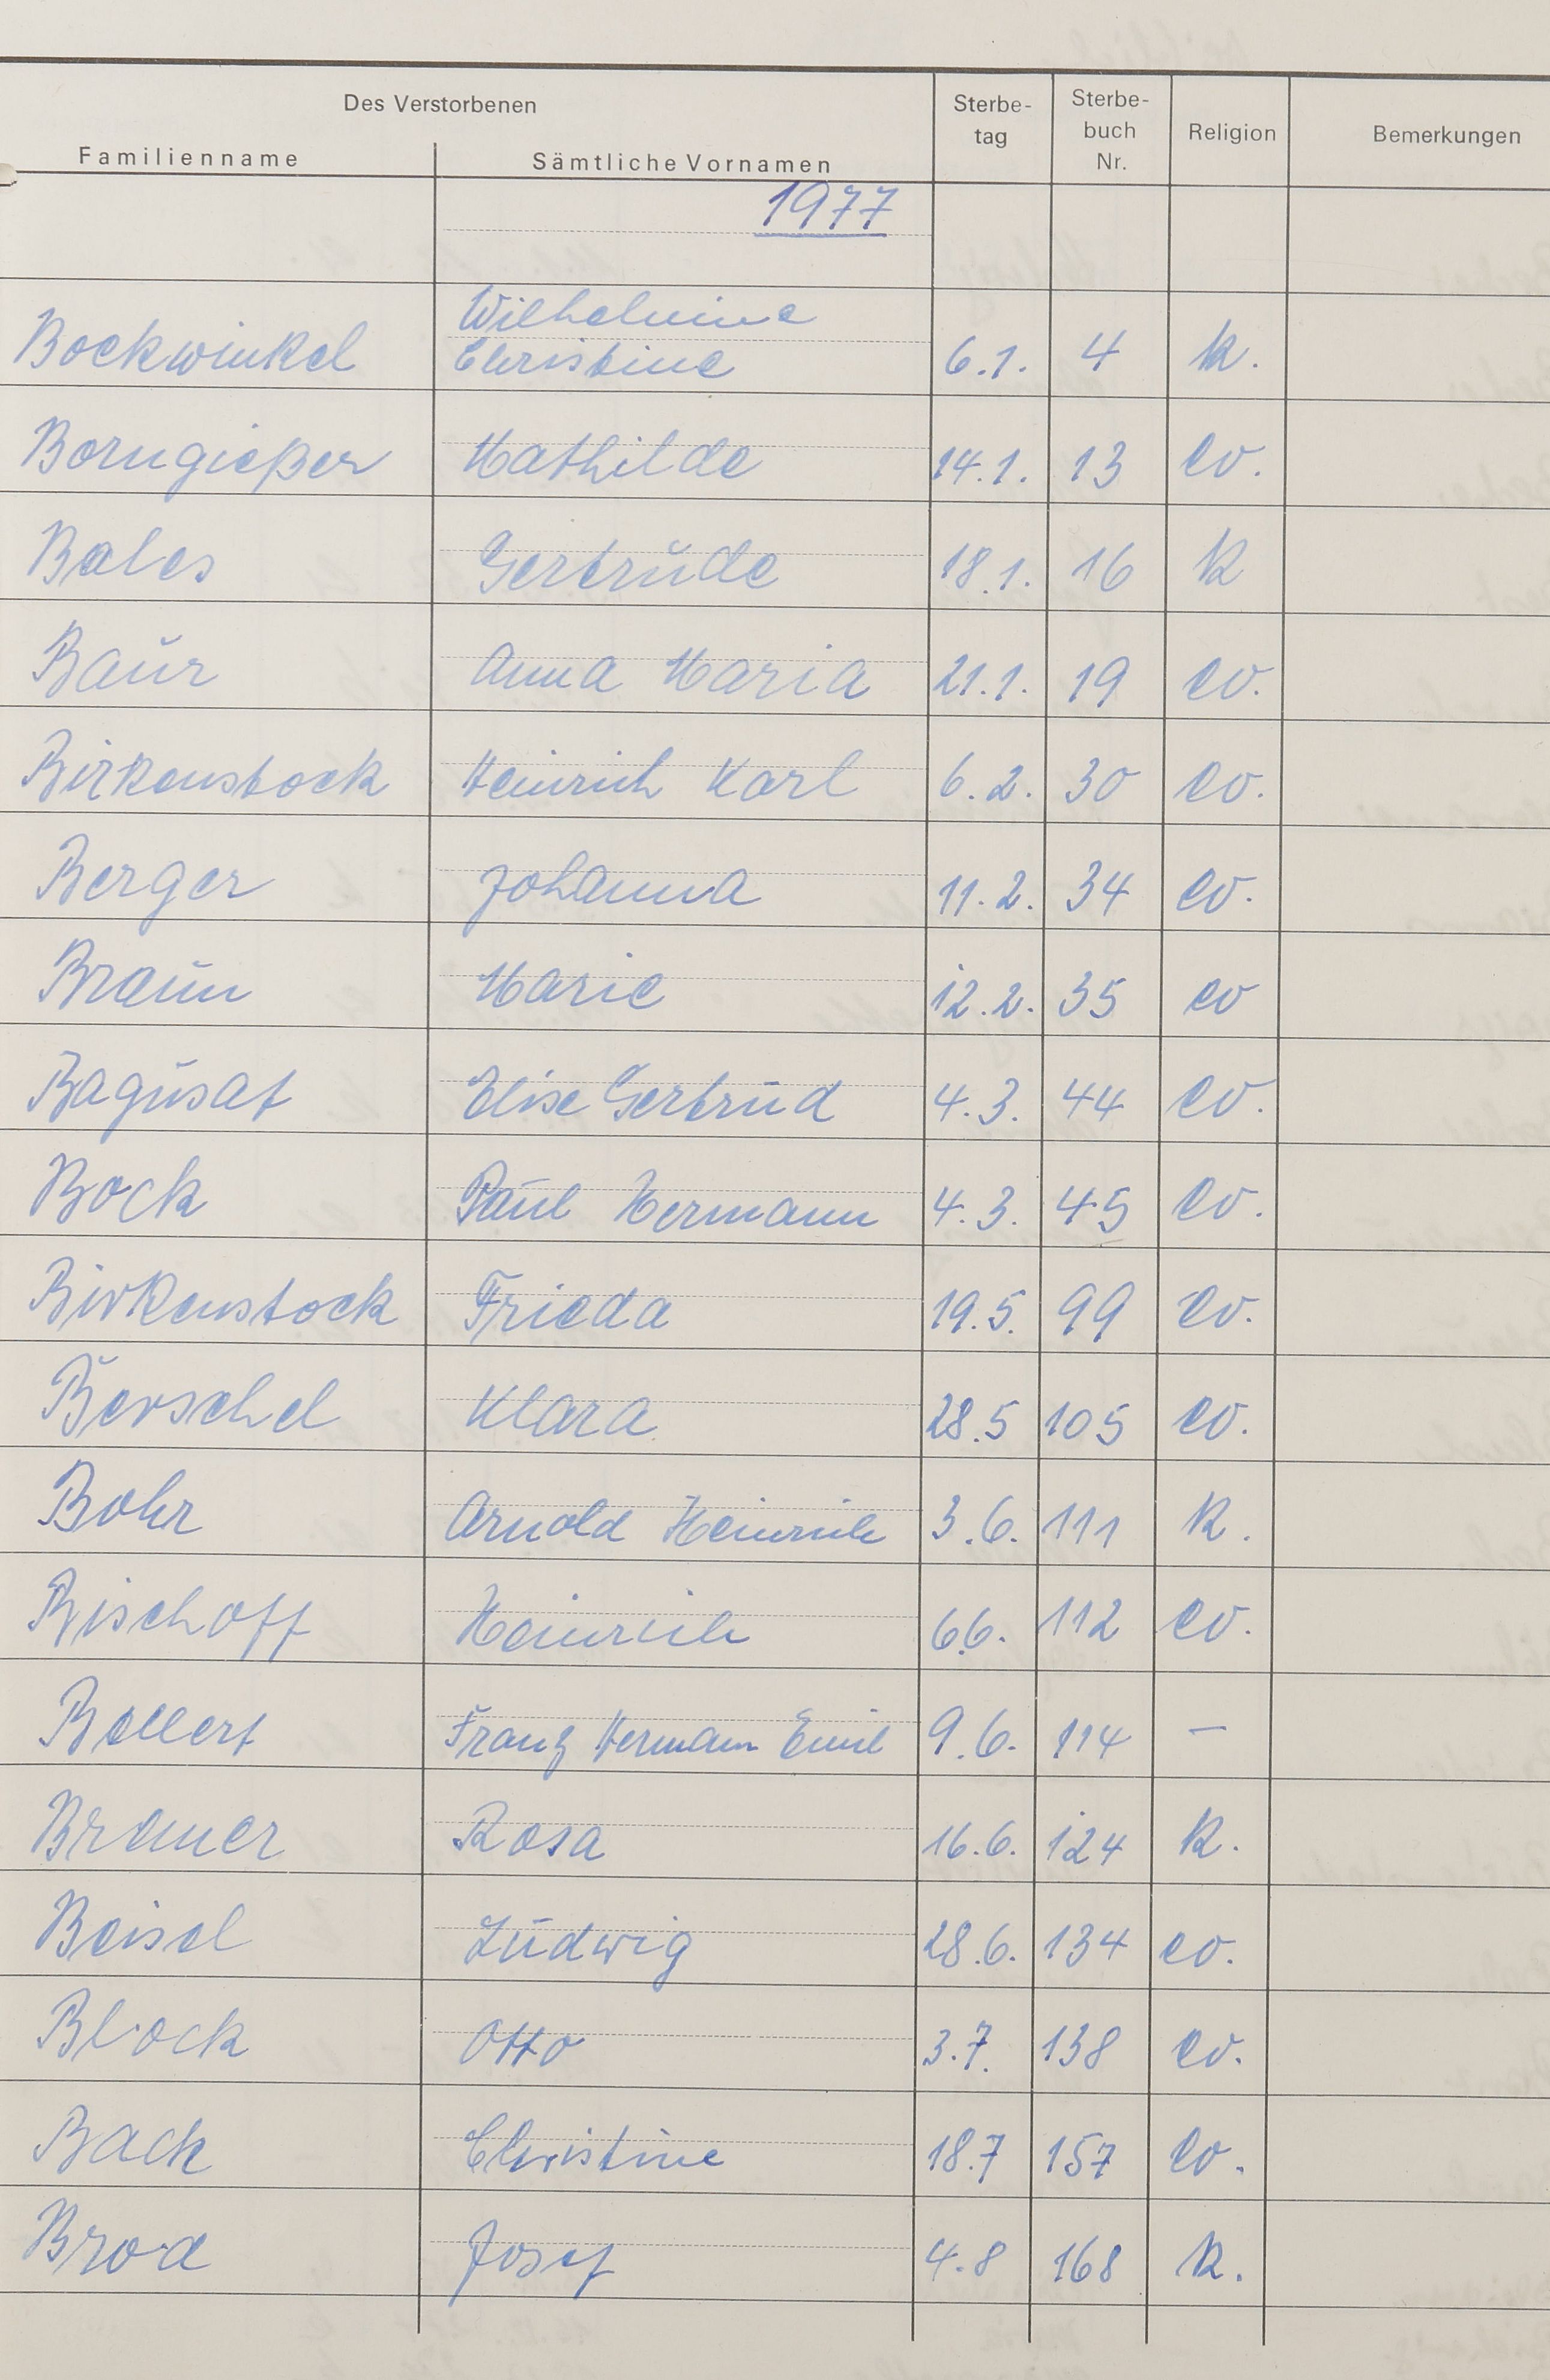 Des Verstorbenen
Familienname Sämtliche Vornamen Sterbe-tag Sterbe-buch Nr. Religion Bemerkungen
1977
Bockwinkel Wilhelmine Christine 6.1. 4 k.
Borngießer Mathilde 14.1. 13 ev.
Bales Gertrude 18.1. 16 k
Baur Anna Maria 21.1. 19 ev.
Birkenstock Heinrich Karl 6.2. 30 ev.
Berger Johanna 11.2. 34 ev.
Braun Marie 12.2. 35 ev
Bagusat Elise Gertrud 4.3. 44 ev.
Bock Paul Hermann 4.3. 45 ev.
Birkenstock Frieda 19.5. 99 ev.
Berschel Klara 28.5 105 ev.
Bohr Arnold Heinrich 3.6. 111 k.
Bischoff Heinrich 6.6. 112 ev.
Bellert Franz Hermann Emil 9.6. 114 –
Bramer Rosa 16.6. 124 k.
Beisel Ludwig 28.6. 134 ev.
Block Otto 3.7. 138 ev.
Back Christine 18.7 157 ev.
Brod Josef 4.8 168 k.